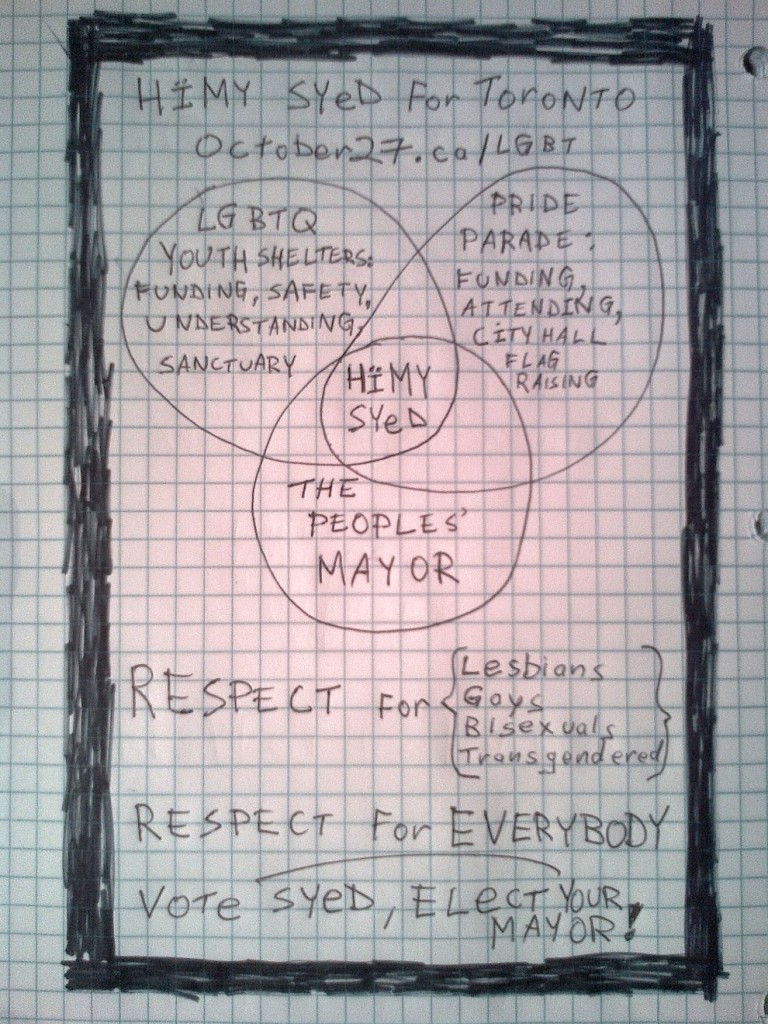 HÏMY SYeD For ToroNTO
October27.ca/LGBT
LGBTQ
YOUTH SHELTERS:
FUNDING, SAFETY,
UNDERSTANDING,
SANCTUARY
PRIDE
PARADE:
FUNDING,
ATTENDING,
CITY HALL
FLAG
RAISING
HÏMY
SYeD
THE
PEOPLES'
MAYOR
RESPECT For { Lesbians
Gays
Bisexuals
Transgendered }
RESPECT For EVERYBODY
VoTe SYeD, ELecT YOUR
MAYOR!